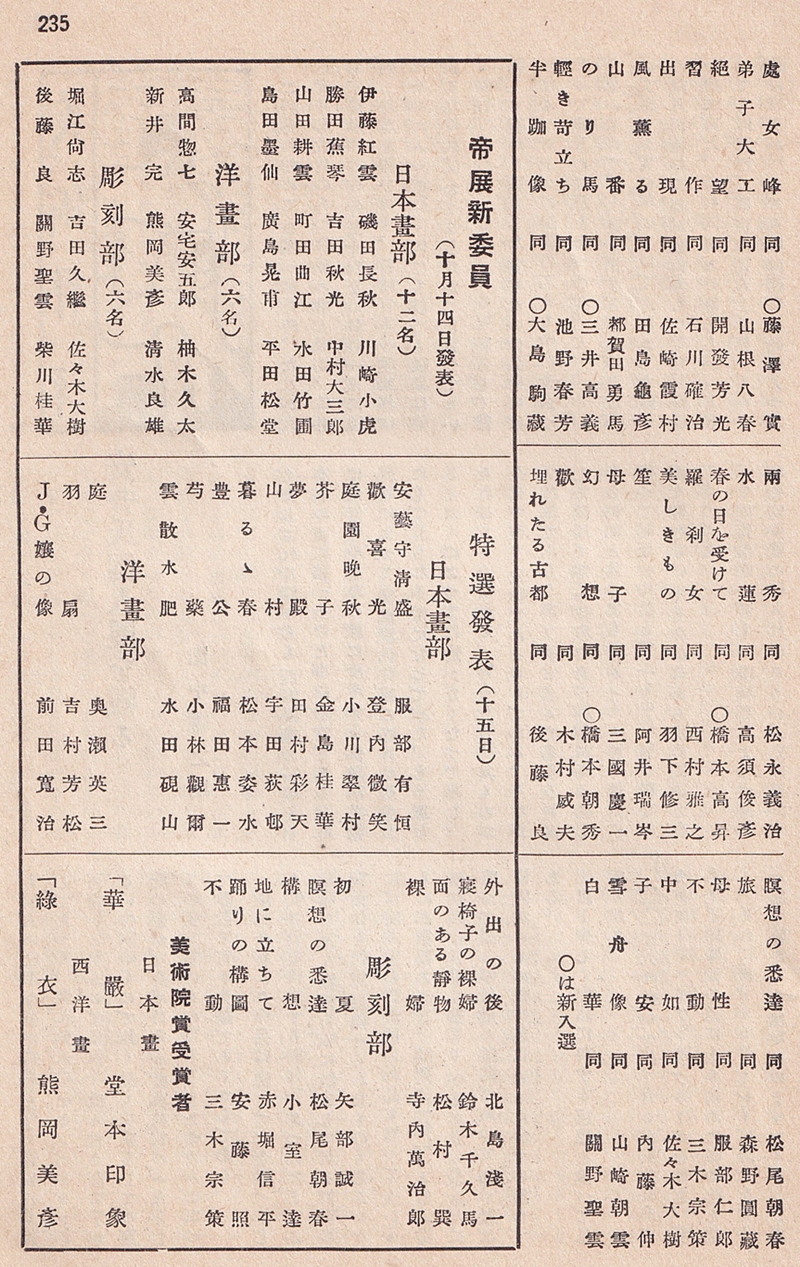 235
處女峰 同 ○藤澤實
弟子大工 同 山根八春
絕望 同 開發芳光
習作 同 石川確治
出現 同 佐崎霞村
風薰る 同 田島龜彥
山番 同 都賀田勇馬
のり馬 同 ○三井高義
輕き苛立ち 同 池野春芳
半跏像 同 ○大島駒藏
雨秀 同 松永義治
水蓮 同 高須俊彥
春の日を受けて 同 ○橋本高昇
羅刹女 同 西村雅之
美しきもの 同 羽下修三
笙 同 阿井瑞岑
母子 同 三國慶一
幻想 同 ○橋本朝秀
歡 同 木村威夫
埋れたる古都 同 後藤良
瞑想の悉達 同 松尾朝春
旅 同 森野圓藏
母性 同 服部仁郎
不動 同 三木宗策
中如 同 佐々木大樹
子安 同 內藤伸
雪舟像 同 山崎朝雲
白華 同 關野聖雲
○は新入選
帝展新委員
(十月十四日發表)
日本畫部(十二名)
伊藤紅雲 磯田長秋 川崎小虎
勝田蕉琴 吉田秋光 中村大三郎
山田耕雲 町田曲江 水田竹圃
島田墨仙 廣島晃甫 平田松堂
洋畫部(六名)
高間惣七 安宅安五郎 柚木久太
新井完 熊岡美彥 清水良雄
彫刻部(六名)
堀江尙志 吉田久繼 佐々木大樹
後藤良 關野聖雲 柴川桂華
特選發表(十五日)
日本畫部
安藝守淸盛 服部有恒
歡喜光 登內微笑
庭園晚秋 小川翠村
芥子 金島桂華
夢殿 田村彩天
山村 宇田荻邨
暮るゝ春 松本姿水
豊公 福田惠一
芍藥 小林觀爾
雲散水肥 水田硯山
洋畫部
庭 奧瀨英三
羽扇 吉村芳松
J・G孃の像 前田寬治
外出の後 北島淺一
寢椅子の裸婦 鈴木千久馬
面のある靜物 松村巽
裸婦 寺內萬治郎
彫刻部
初夏 矢部誠一
瞑想の悉達 松尾朝春
構想 小室達
地に立ちて 赤堀信平
踊りの構圖 安藤照
不動 三木宗策
美術院賞受賞者
日本畫
「華嚴」 堂本印象
西洋畫
「綠衣」 熊岡美彥